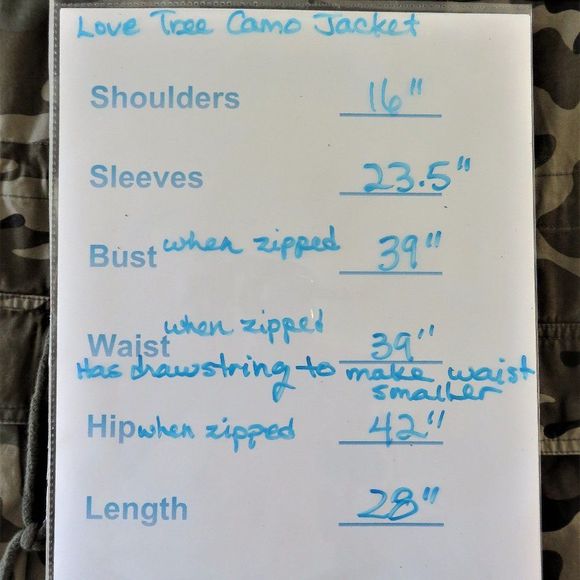 Love Tree Camo Jacket
Shoulders 16"
Sleeves 23.5"
Bust when zipped 39"
Waist when zipped 39"
Has drawstring to make waist
smaller
Hip when zipped 42"
Length 28"